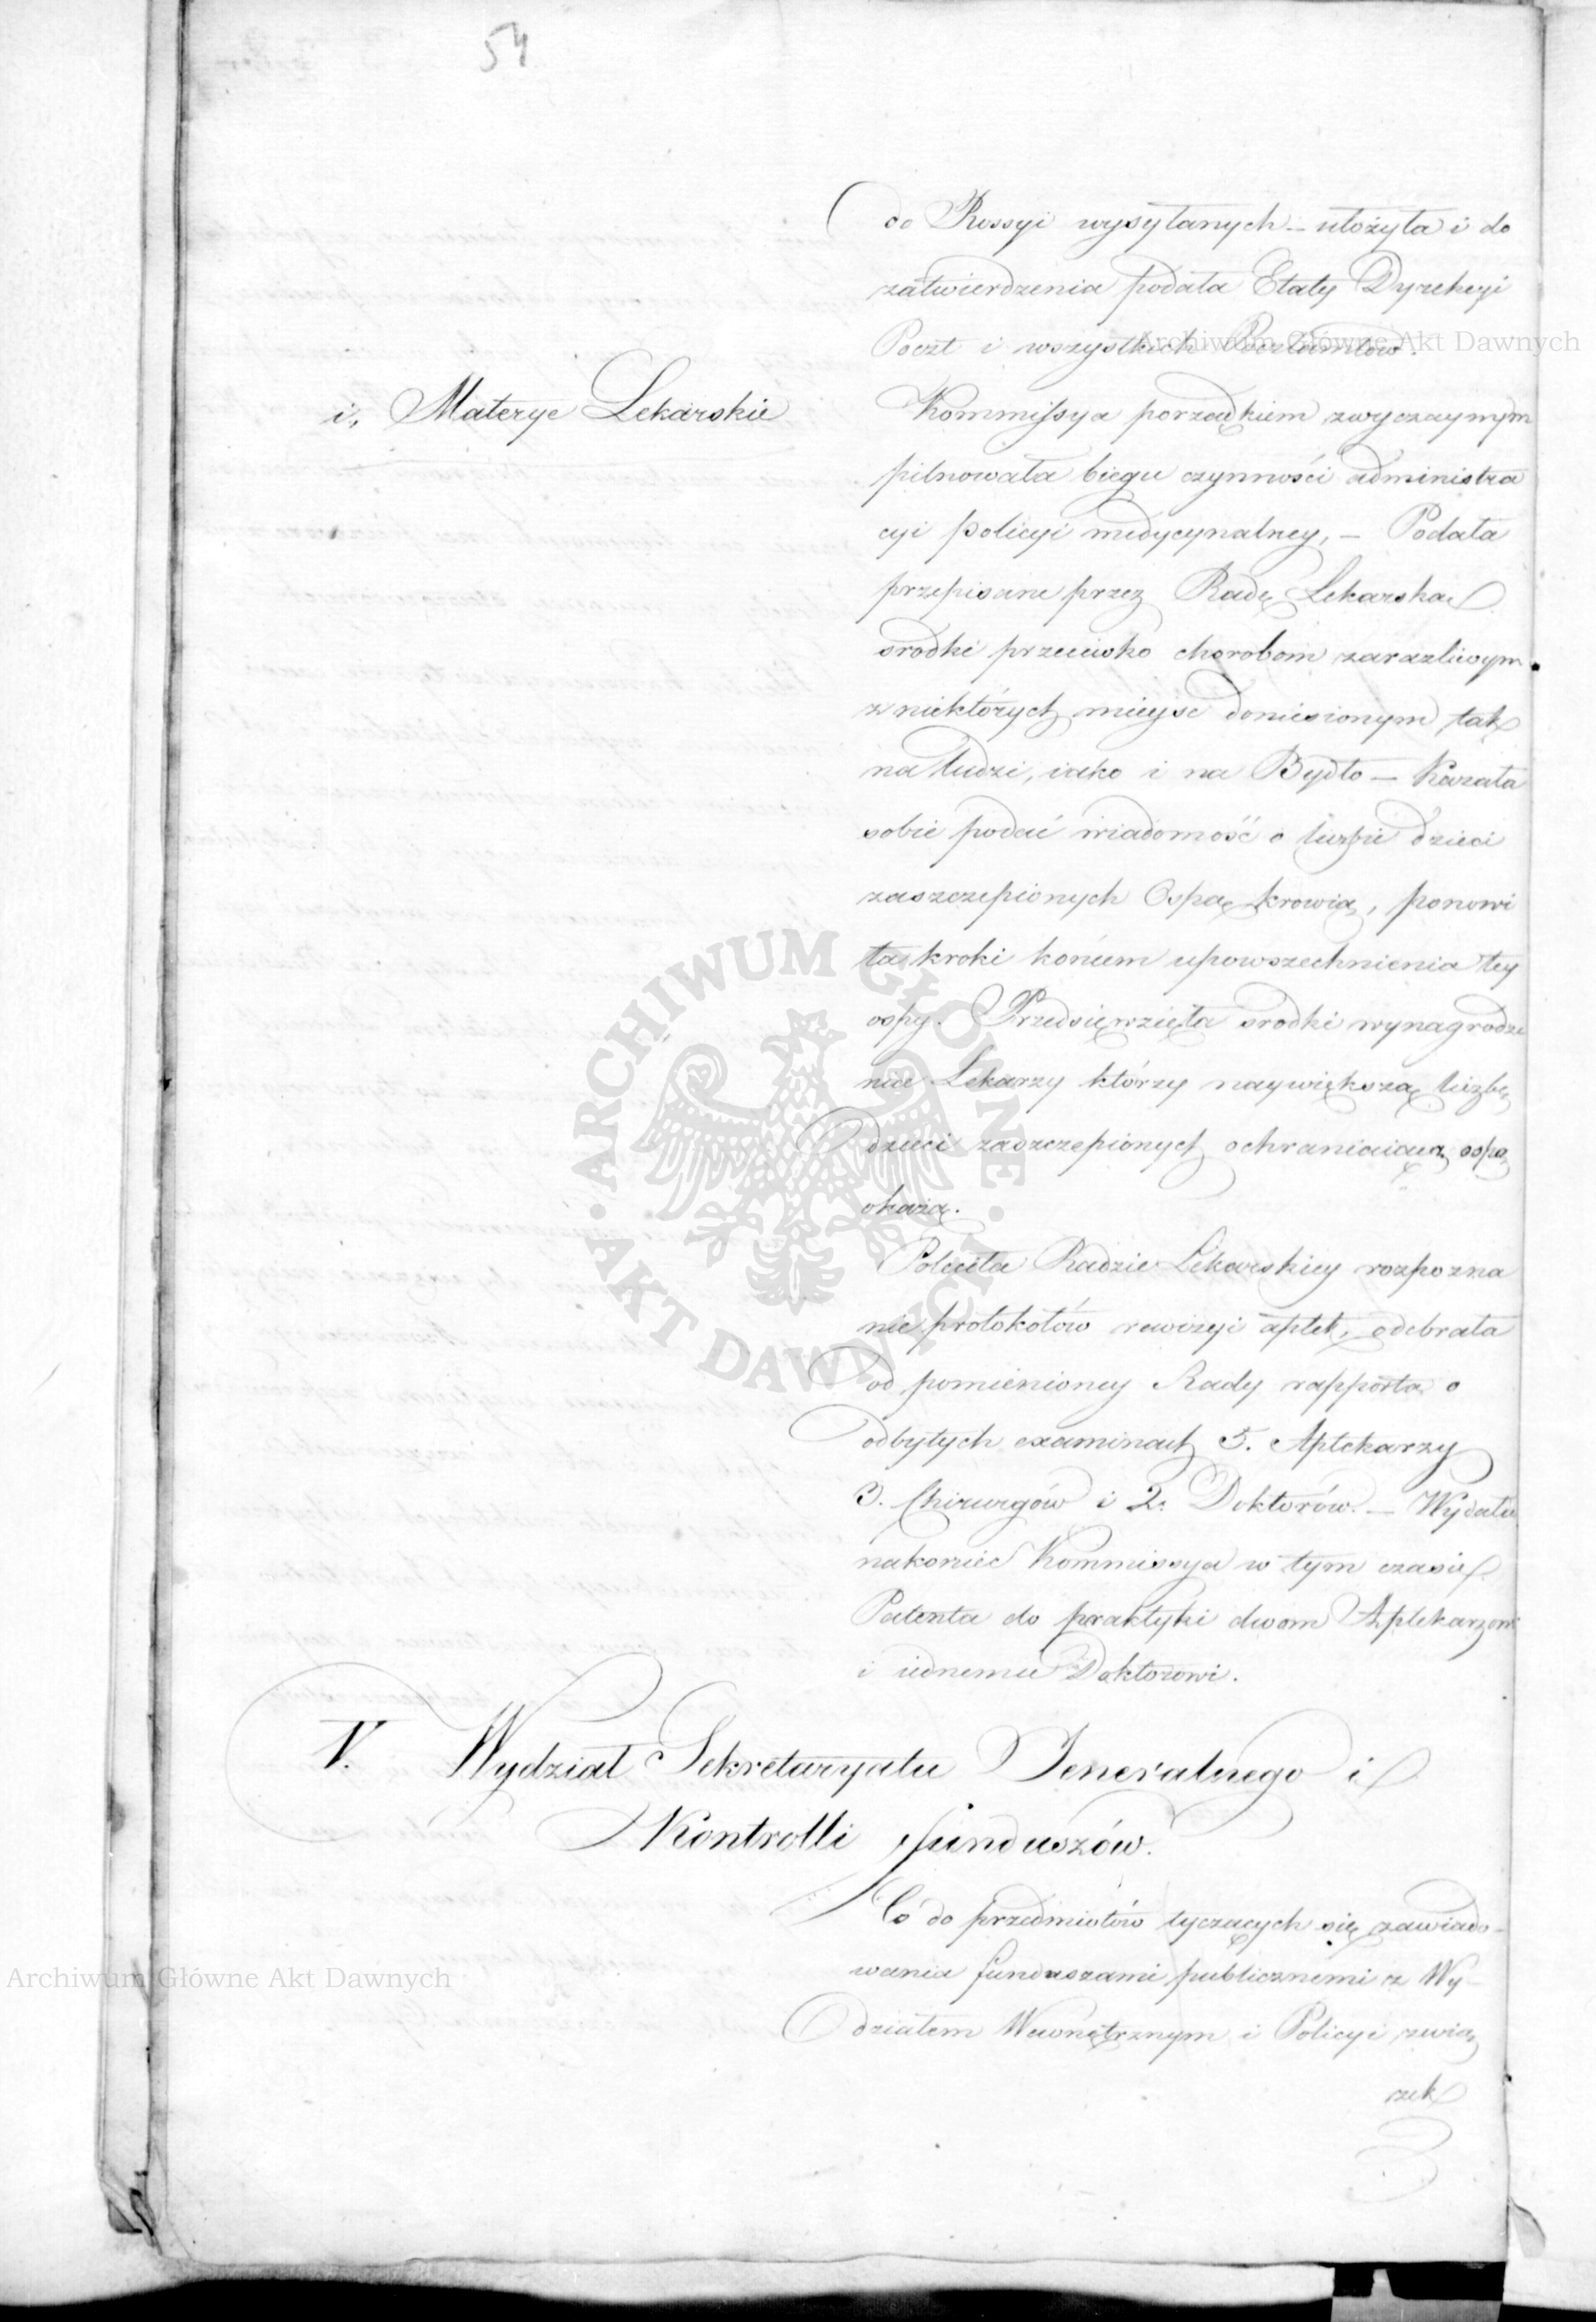 54
do Rossyi wysyłanych – ułożyła i do
zatwierdzenia podała Etaty Dyrekcyi
Poczt i wszystkich Pocztamtów.
Archiwum Główne Akt Dawnych
i, Materye Lekarskie
Kommissya porządkiem zwyczaynym
pilnowała biegu czynności administra
cyi policyi medycynalney, – Podała
przepisane przez Radę Lekarską
srodki przeciwko chorobom zarazliwym
z niektórych mieysc doniesionym tak
na ludzi, iako i na Bydło – Kazała
sobie podać wiadomość o liczbie dzieci
zaszczepionych Ospą krowią, ponowi
ła kroki końcem upowszechnienia tey
ospy. Przedsięwzięła srodki wynagrodze
nia Lekarzy którzy naywiększą liczbę
dzieci zaszczepionych ochraniaiącą ospą
okażą.
Poleciła Radzie Lekarskiey rozpozna
nie protokołów rewizyi aptek, odebrała
od pomienioney Rady rapporta o
odbytych examinach 5. Aptekarzy
3. Chirurgów i 2. Doktorów. – Wydała
nakoniec Kommissya w tym czasie
Patenta do praktyki dwom Aptekarzom
i iednemu Doktorowi.
V. Wydział Sekretaryatu Jeneralnego i
Kontrolli funduszów.
Co do przedmiotów tyczących się zawiado-
wania funduszami publicznemi z Wy-
Archiwum Główne Akt Dawnych
działem Wewnętrznym i Policyi zwią
zek
ARCHIWUM GŁÓWNE
AKT DAWNYCH